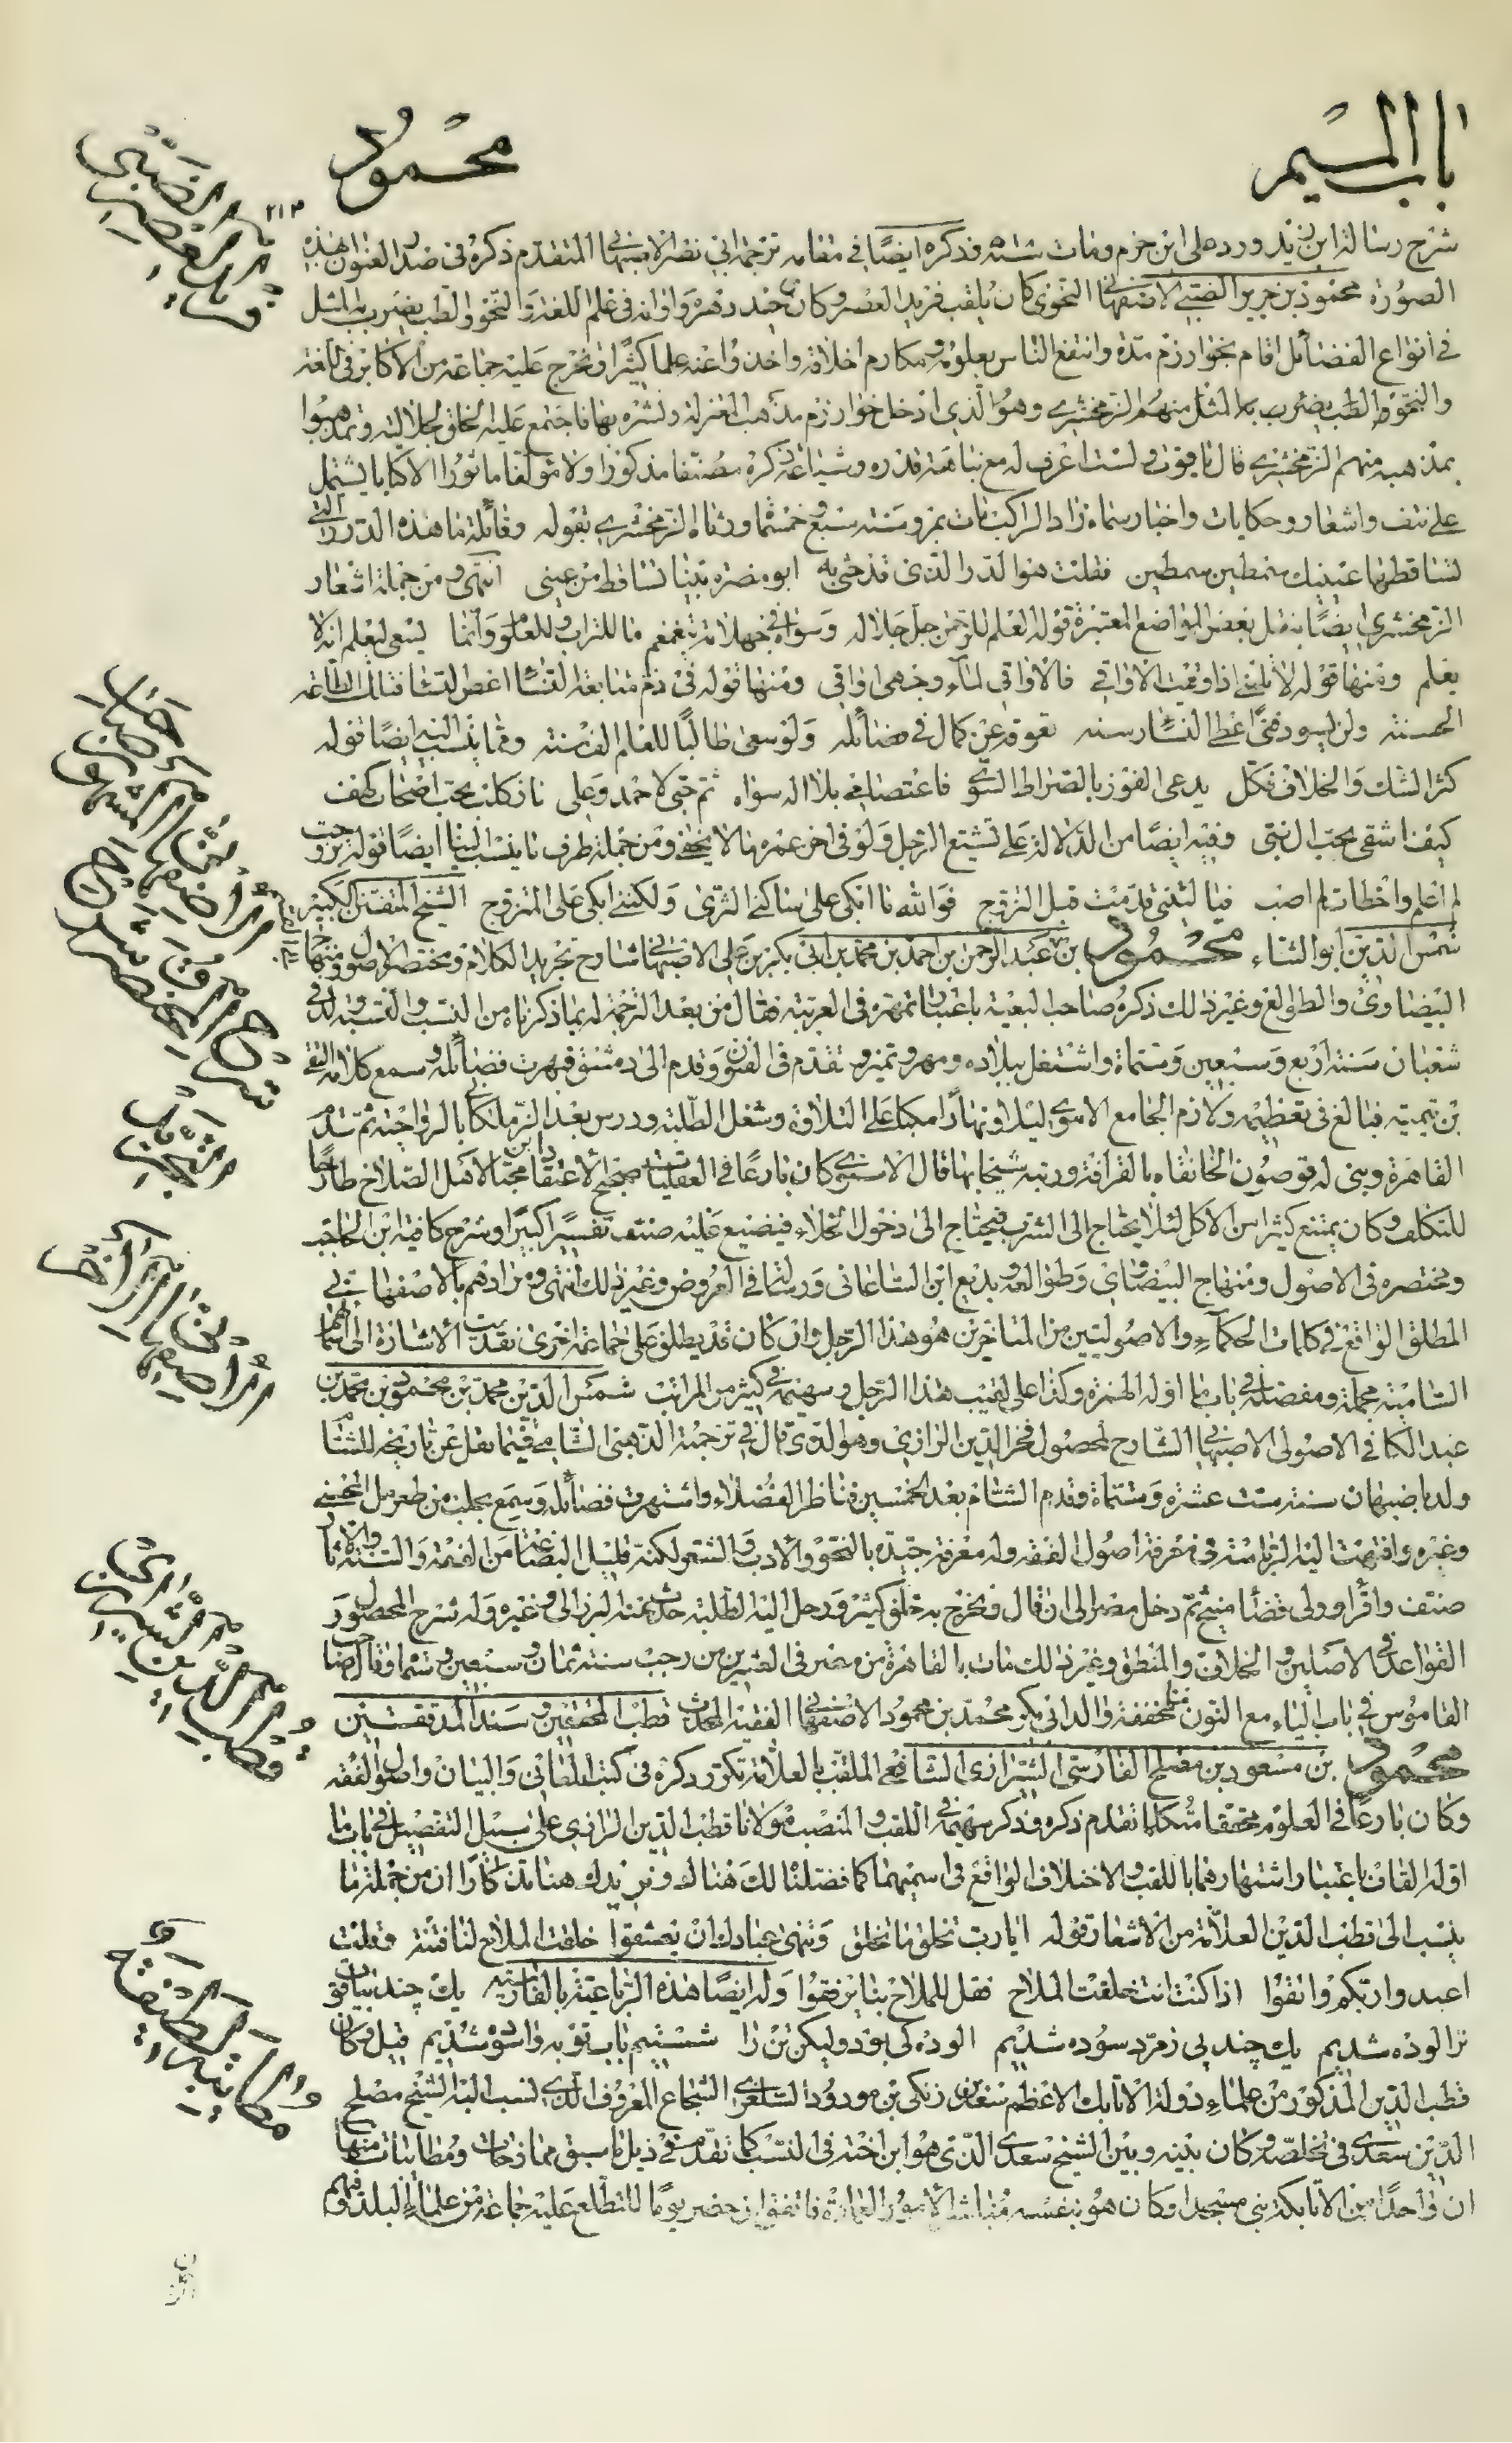 باب الميم
محمود
٢١٣
شرح رسالة ابن زيد ورد على ابن حزم ومات سنة وذكره ايضا في مقام ترجمة ابي نصر الاصبهاني المتقدم ذكره في صدر العنوان بهذه
الصورة محمود بن جرير الضبي الاصفهاني النحوى كان يلقب فريد العصر وكان وحيد دهره واوانه فى علم اللغة والنحو والطب يضرب به المثل
في انواع الفضائل اقام بخوارزم مدة وانتفع الناس بعلومه ومكارم اخلاقه واخذوا عنه علما كثيرا وتخرج عليه جماعة من الاكابر فى اللغة
والنحو والطب يضرب به المثل منهم الزمخشرى وهو الذى ادخل خوارزم مذهب المعتزلة ونشره بها فاجتمع عليه الخلق لجلالته وتمذهبوا
بمذهبه منهم الزمخشرى قال ياقوت ولست اعرف له مع نباهة قدره وشياعة ذكره مصنفا مذكورا ولا مؤلفا ماثورا الا كتابا يشتمل
على نتف واشعار وحكايات واخبار سماه زاد الراكب مات بمرو سنة سبع وخمسمائة ورثاه الزمخشرى بقوله وقائلة ما هذه الدرر التى
تساقطها عينيك سمطين سمطين فقلت هو الدر الذى قد حشى به ابو مضر اذنى تساقط من عينى انتهى ومن جملة اشعار
الزمخشرى ايضا بنقل بعض المواضع المعتبرة قوله العلم للرحمن جل جلاله وسواه فى جهلاته يتغمغم ما للتراب وللعلوم وانما يسعى ليعلم انه لا
يعلم ومنها قوله لا تلمنى اذا وقيت الاواقى فالاواقى لماء وجهى اواقى ومنها قوله فى ذم متابعة النساء اعص النساء فتلك الطاعة
الحسنة ولن يسود فتى اعطى النساء رسنه تعوقه عن كمال فى فضائله ولو سعى طالبا للعلم الف سنه ومما ينسب اليه ايضا قوله
كثر الشك والخلاف فكل يدعى الفوز بالصراط السوى فاعتصامى بلا اله سواه ثم حبى لاحمد وعلى فاز كلب بحب اصحاب كهف
كيف اشقى بحب ال نبى وفيه ايضا من الدلالة على تشيع الرجل ولو فى اخر عمره ما لا يخفى ومن جملة طرف ما ينسب اليه ايضا قوله تزوجت
لم اعلم واخطات لم اصب فيا ليتنى قد مت قبل التزوج فوالله ما ابكى على ساكنى الثرى ولكننى ابكى على المتزوج الشيخ المتفنن الكبير
شمس الدين ابو الثناء محمود بن عبد الرحمن بن احمد بن محمد بن ابى بكر بن على الاصبهانى شارح تجريد الكلام ومختصر الاصول ومنهاج
البيضاوى والطوالع وغير ذلك ذكره صاحب البغية باعتبار تمهره فى العربية فقال من بعد الترجمة له بما ذكرناه من النسب والنسبة ولد فى
شعبان سنة اربع وسبعين وستمائة واشتغل ببلاده ومهر وتميز وتقدم فى الفنون وقدم الى دمشق فبهرت فضائله وسمع كلامه التقى
بن تيمية فبالغ فى تعظيمه ولازم الجامع الاموى ليلا ونهارا مكبا على التلاوة وشغل الطلبة ودرس بعد الزملكانى بالرواحية ثم قدم
القاهرة وبنى له قوصون الخانقاه بالقرافة ورتبه شيخا بها قال الاسنوى كان بارعا فى العقليات صحيح الاعتقاد محبا لاهل الصلاح طارحا
للتكلف وكان يمتنع كثيرا من الاكل لئلا يحتاج الى الشرب فيحتاج الى دخول الخلاء فيضيع عليه صنف تفسيرا كبيرا وشرح كافية ابن الحاجب
ومختصره فى الاصول ومنهاج البيضاوى وطوالعه وبديع ابن الساعاتى ورسالة فى العروض وغير ذلك انتهى ومرادهم بالاصفهانى
المطلق الواقع فى كلمات الحكماء والاصوليين من المتاخرين هو هذا الرجل وان كان قد يطلق على جماعة اخرى تقدمت الاشارة الى اسمائهم
السامية مجملة ومفصلة فى باب ما اوله الهمزة وكذا على لقيب هذا الرجل وسهيمه فى كثير من المراتب شمس الدين محمد بن محمود بن محمد بن
عبد الكافى الاصولى الاصبهانى الشارح لمحصول فخر الدين الرازى وهو الذى قال فى ترجمته الذهبى الشامى فيما نقل عن تاريخه للشام
ولد باصبهان سنة ست عشرة وستمائة وقدم الشام بعد الخمسين فناظر الفضلاء واشتهرت فضائله وسمع بحلب من طغرل المحسنى
وغيره وانتهت اليه الرياسة فى معرفة اصول الفقه وله معرفة جيدة بالنحو والادب والشعر لكنه قليل البضاعة من الفقه والسنة والاثار
صنف واقرا وولى قضاء منبج ثم دخل مصر الى ان قال وتخرج به خلق كثير ورحل اليه الطلبة حدث عنه البرزالى وغيره وله شرح المحصول
القواعد فى الاصلين والخلاف والمنطق وغير ذلك مات بالقاهرة من مصر فى العشرين من رجب سنة ثمان وسبعين وستمائة وقال صاحب
القاموس فى باب الياء مع النون مخففة والد ابى بكر محمد بن محمود الاصفهانى الفقيه المحدث قطب المحققين وسند المدققين
محمود بن مسعود بن مصلح الفارسى الشيرازى الشافعى الملقب بالعلامة تكرر ذكره فى كتب المعانى والبيان واصول الفقه
وكان بارعا فى العلوم محققا متكلما تقدم ذكره وذكر سهيمه فى اللقب والمنصب مولانا قطب الدين الرازى على سبيل التفصيل فى باب ما
اوله القاف باعتبار اشتهارهما باللقب والاختلاف الواقع فى اسميهما كما فصلنا لك هنالك ونزيدك هنا تذكارا ان من جملة ما
ينسب الى قطب الدين العلامة من الاشعار قوله ايا رب تخلق ما تخلق وتنهى عبادك ان يعشقوا خلقت الملاح لنا فتنة وقلت
اعبدوا ربكم واتقوا اذا كنت انت خلقت الملاح فقل للملاح بنا يرفقوا وله ايضا هذه الرباعية بالفارسية يك چند بياقوت
تر الوده شديم يك چند پى زمرد سوده شديم الوده كى بود وليكن تن را شستيم باب توبه واسوده شديم قيل وكان
قطب الدين المذكور من علماء دولة الاتابك الاعظم سعد بن زنكى بن مودود السلغرى الشجاع المعروف الذى انتسب اليه الشيخ مصلح
الدين سعدى فى تخلصه وكان بينه وبين الشيخ سعدى الذى هو ابن اخته فى النسب كما تقدم فى ذيل ما سبق ممازحات ومطايبات منها
ان واحدا من الاتابكة بنى مسجدا وكان هو بنفسه مباشر الامور العمارة فاتفق ان حضر يوما للتطلع عليه جماعة من علماء البلد وفيهم